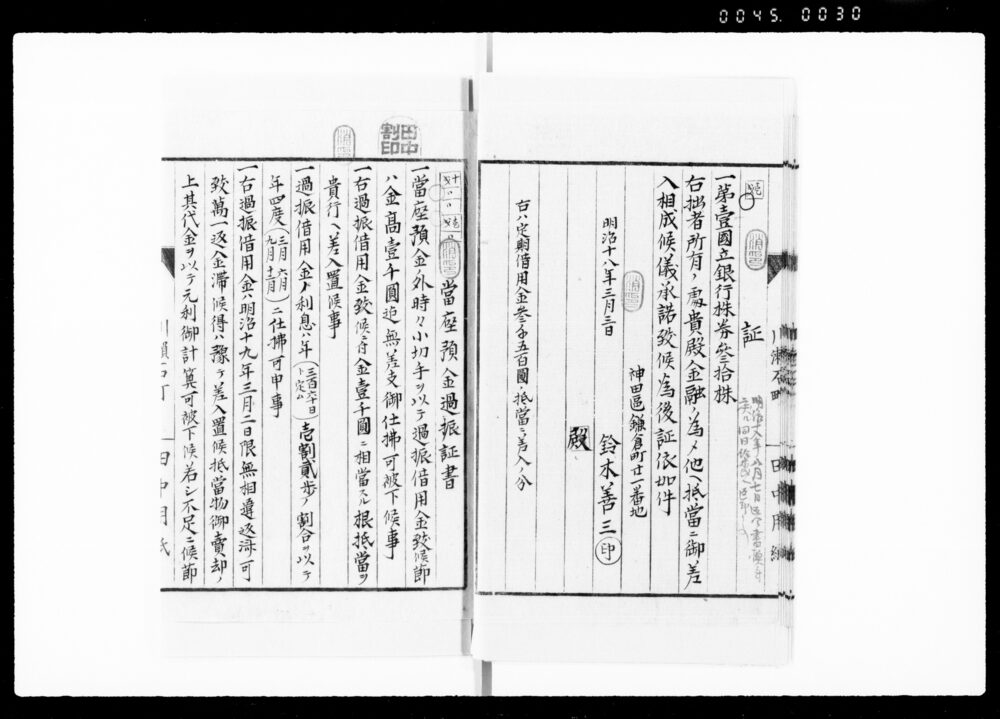 0045. 0030
証
一第壹國立銀行株券叄拾株
右拙者所有ノ處貴殿金融ノ為メ他ヘ抵當ニ御差
入相成候儀承諾致候為後証依如件
明治十八年三月三日
神田區鎌倉町廿一番地
鈴木善三 印
殿
右ハ定期借用金叄千五百圓ノ抵當ニ差入ノ分
田中
割印
當座預金過振証書
一當座預金ノ外時々小切手ヲ以テ過振借用金致候節
ハ金高壹千圓迄無差支御仕拂可被下候事
一右過振借用金致候ニ付金壹千圓ニ相當スル根抵當ヲ
貴行ヘ差入置候事
一過振借用金ノ利息ハ年(三百六十日ト定ム)壱割貳歩ノ割合ヲ以テ
年四度(三月六月九月十二月)ニ仕拂可申事
一右過振借用金ハ明治十九年三月二日限無相違返濟可
致萬一返金滞候得ハ豫テ差入置候抵當物御賣却ノ
上其代金ヲ以テ元利御計算可被下候若シ不足ニ候節